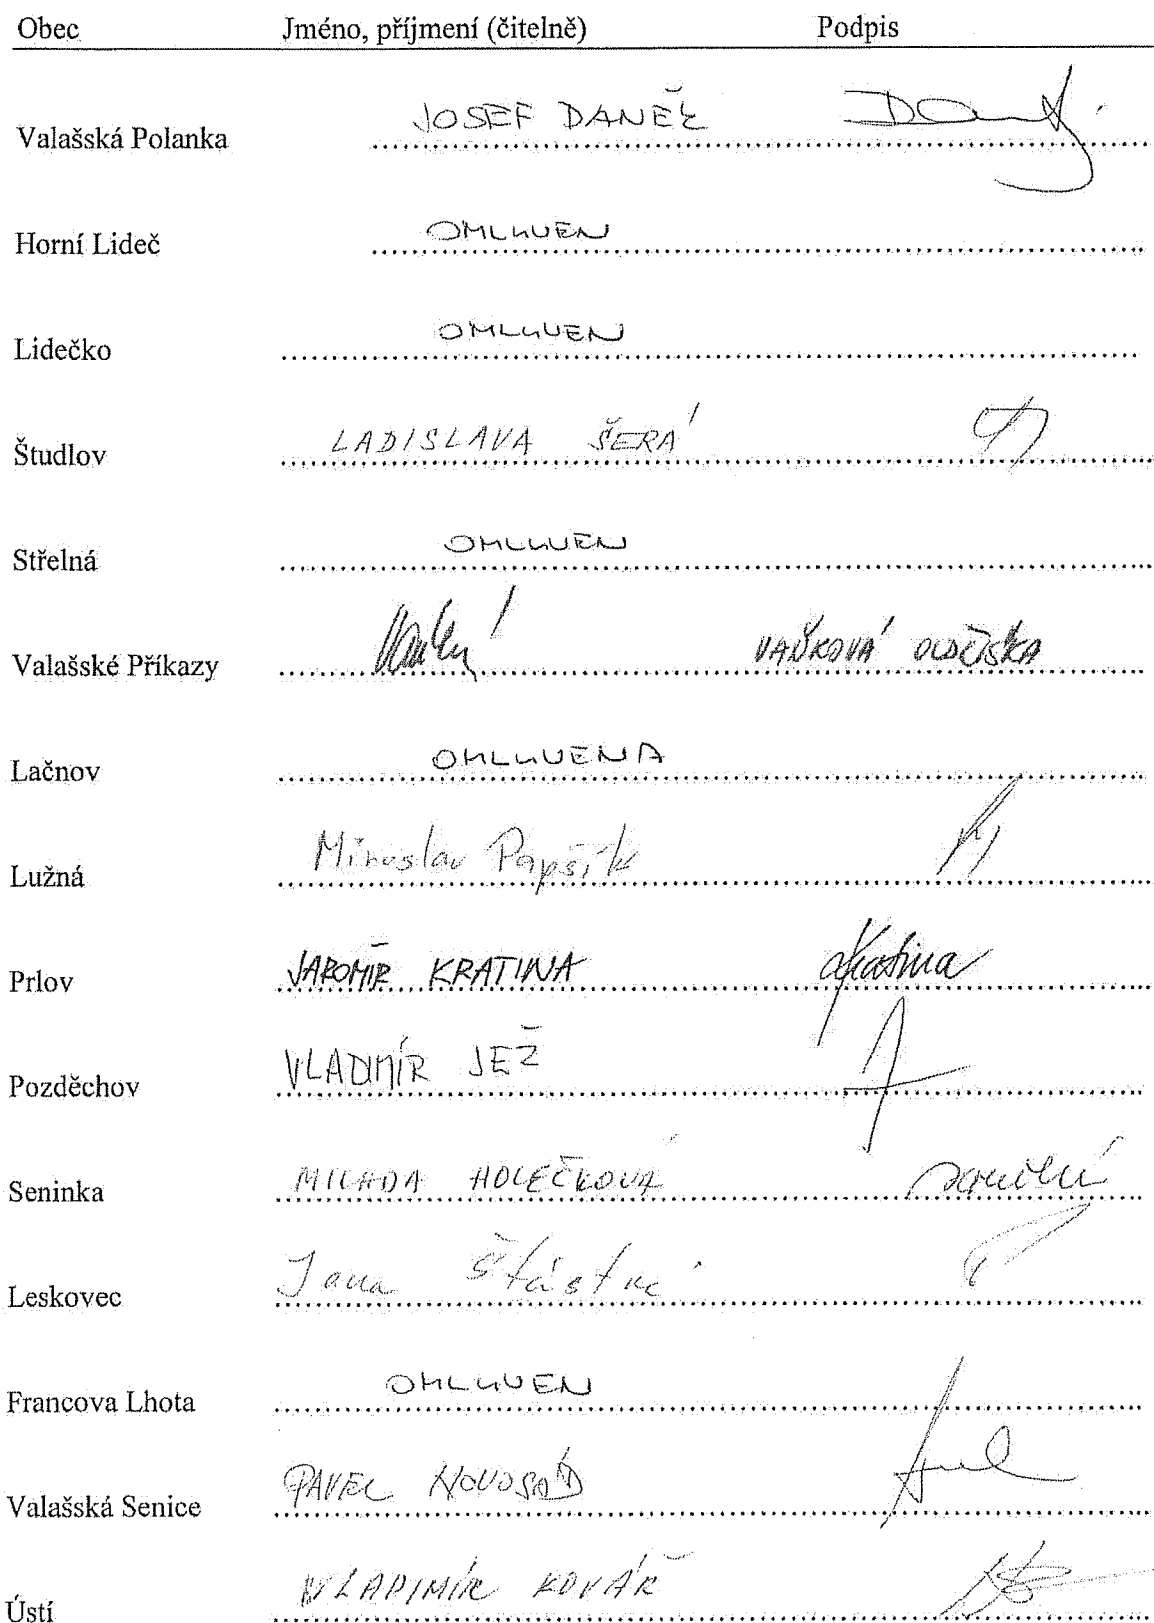 Obec Jméno, příjmení (čitelně) Podpis
Valašská Polanka JOSEF DANĚK
Horní Lideč OMLUVEN
Lidečko OMLUVEN
Študlov LADISLAVA ŠERÁ
Střelná OMLUVEN
Valašské Příkazy VAŇKOVÁ OLDŘIŠKA
Lačnov OMLUVENA
Lužná Miroslav Papšík
Prlov JAROMÍR KRATINA Kratina
Pozděchov VLADIMÍR JEŽ
Seninka MILADA HOLEČKOVÁ
Leskovec Jana Šťastná
Francova Lhota OMLUVEN
Valašská Senice PAVEL NOVOSAD
Ústí VLADIMÍR KOVÁŘ